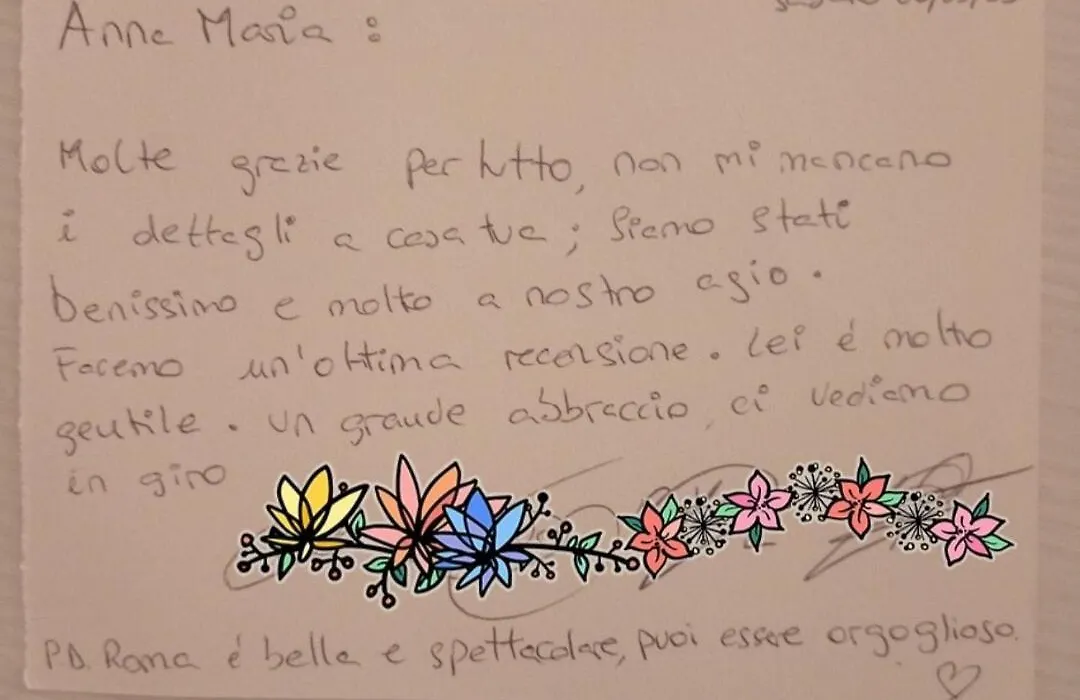 Anna Maria :
Molte grazie per tutto, non mi mancano
i dettagli a casa tua ; siamo stati
benissimo e molto a nostro agio.
Facemo un'ottima recensione. Lei é molto
gentile. un grande abbraccio, ci vediamo
in giro
PD. Roma é bella e spettacolare, puoi essere orgoglioso.